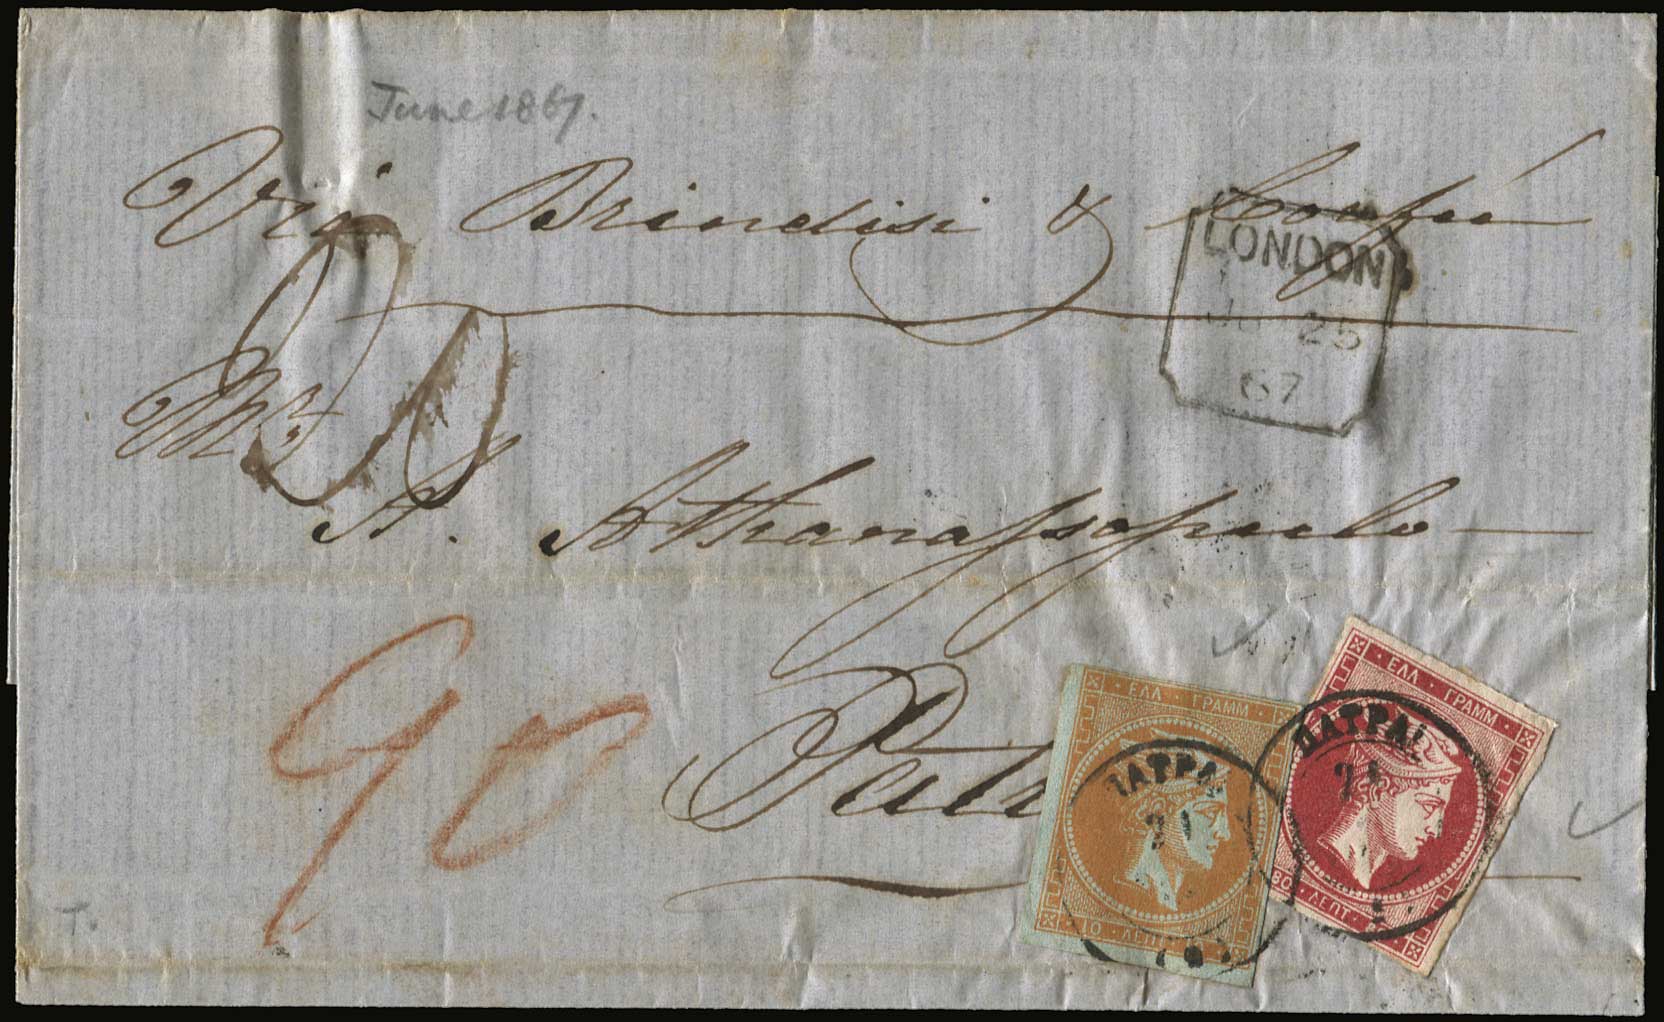 June 1867.
Via Brindisi & Corfu
LONDON
25
67
Mr
A. Athanassopulo
90
Patr
ΕΛΛ · ΓΡΑΜΜ
10 · ΛΕΠΤ
ΠΑΤΡΑΙ
ΕΛΛ · ΓΡΑΜΜ ·
80 · ΛΕΠΤ ·
ΠΑΤΡΑΙ
T.